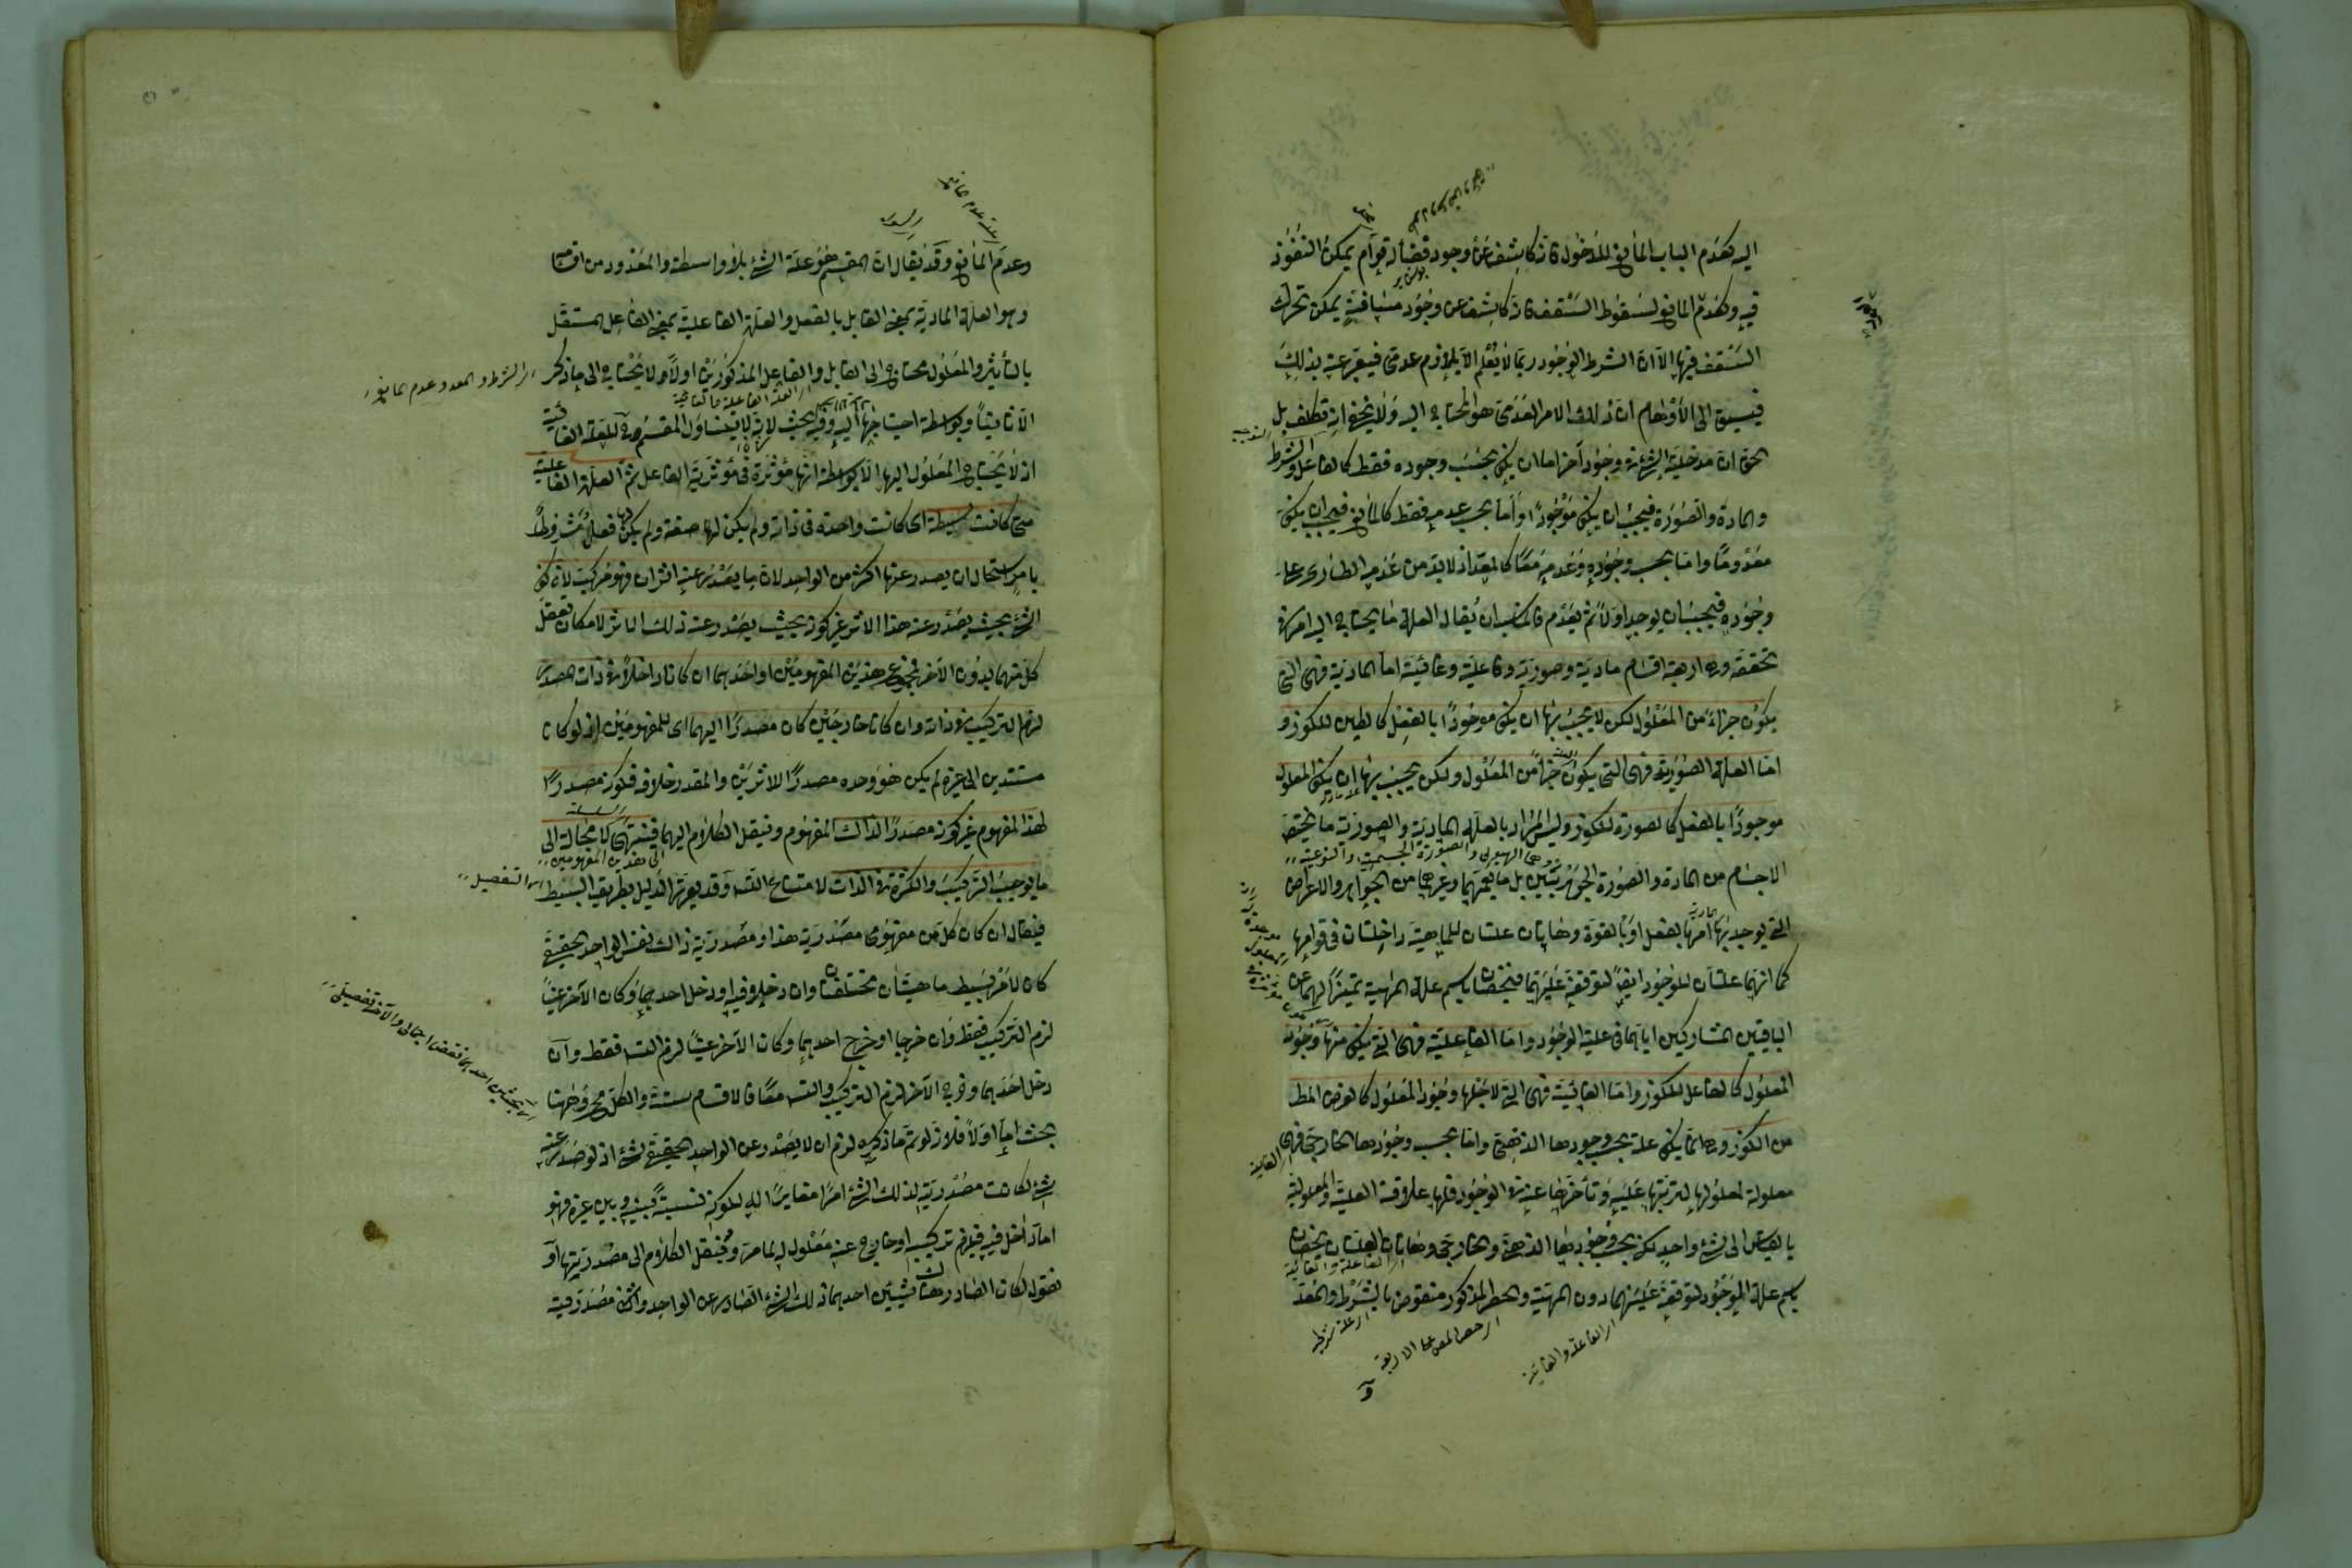 اليه كعدم الباب المانع للدخول فانه كاشف عن وجود فضاء له قوام يمكن النفوذ
فيه وكعدم المانع لسقوط السقف فانه كاشف عن وجود مسافة يمكن تحرك
السقف فيها الا ان الشرط الوجود ربما لا يعلم الا بلازم عدمى فيعبر عنه بذلك
فيسبق الى الاوهام ان ذلك الامر العدمى هو المحتاج اليه ولا يخفى انه تكلف بل
الحق ان مدخلية الشئ فى وجود آخر اما ان يكون بحسب وجوده فقط كالفاعل والشرط
والمادة والصورة فيجب ان يكون موجودا واما بحسب عدمه فقط كالمانع فيجب ان يكون
معدوما واما بحسب وجوده وعدمه معا كالمعد اذ لا بد من عدمه الطارى على
وجوده فيجب ان يوجد اولا ثم يعدم فالمناسب ان يقال العلة ما يحتاج اليه امر فى
تحققه وهى اربعة اقسام مادية وصورية وفاعلية وغائية اما المادية فهى التى
يكون جزء من المعلول لكن لا يجب بها ان يكون موجودا بالفعل كالطين للكوز و
اما العلة الصورية فهى التى يكون جزء من المعلول ولكن يجب بها ان يكون المعلول
موجودا بالفعل كالصورة للكوز وليس المراد بالعلة المادية والصورية ما يختص
وهما الهيولى والصورة الجسمية والنوعية
الاجسام من المادة والصورة الجوهريتين بل ما يعمهما وغيرهما من الجواهر والاعراض
التى يوجد بها امر ما بالفعل او بالقوة وهاتان علتان للماهية داخلتان فى قوامها
كما انهما علتان للوجود ايضا لتوقفه عليهما فيختصان باسم علة المهية تميزا لهما عن
الباقيين المشاركين اياهما فى علية الوجود واما الفاعلية فهى التى يكون منها وجود
المعلول كالفاعل للكوز واما الغائية فهى التى لاجلها وجود المعلول كالغرض المط
من الكوز وهى انما يكون علة بحسب وجودها الذهنى واما بحسب وجودها الخارجى فهى
معلولة لمعلولها لترتبها عليه وتأخرها عنه فى الوجود فلها علاقة العلية والمعلولية
بالقياس الى شئ واحد لكن بحسب وجوديها الذهنى والخارجى وهاتان العلتان يختصان
اى الفاعلة والغائية
باسم علة الوجود لتوقفه عليهما دون المهية والحصر المذكور منقوض بالشرط والمعد
اى الفاعلة والغائية
اى حصر العلل على الاربعة
و
وعدم المانع وقد يقال ان المقسم هو علة الشئ بلا واسطة والمعدود من اقسامها
وهو العلة المادية بمعنى القابل بالفعل والعلة الفاعلية بمعنى الفاعل المستقل
بالتأثير والمعلول محتاج الى القابل والفاعل المذكورين اولا ولا يحتاج الى ما ذكر
اى الشرط والمعد وعدم المانع
الا ثانيا وبواسطة احتياجهما اليه وفيه بحث لانه لا يتناول المقسم ح للعلة الغائية
اذ لا يحتاج المعلول اليها الا بواسطة انها مؤثرة فى مؤثرية الفاعل ثم العلة الفاعلية
متى كانت بسيطة اى كانت واحدة فى ذاته ولم يكن لها صفة ولم يكن فعلها مشروطا
بامر استحال ان يصدر عنها اكثر من الواحد لان ما يصدر عنه اثران فهو مركب لان كون
الشئ بحيث يصدر عنه هذا الاثر غير كونه بحيث يصدر عنه ذلك الاثر لامكان تعقل
كل منهما بدون الآخر فمجموع هذين المفهومين او احدهما ان كان داخلا فى ذات المصدر
لزم التركيب فى ذاته وان كانا خارجين كان مصدرا اليهما اى للمفهومين اذ لو كانا
مستندين الى غيره لم يكن هو وحده مصدرا للاثرين والمقدر خلافه فكونه مصدرا
لهذا المفهوم غير كونه مصدرا لذلك المفهوم وننقل الكلام اليهما فينتهى لا محالة الى
الى هذين المفهومين
ما يوجب التركيب والكثرة فى الذات لامتناع التسلسل وقد يقرر الدليل بطريق البسيط
اى التفصيل
فيقال ان كان كل من مفهومى مصدرية هذا ومصدرية ذاك نفس الواحد الحقيقى
كان لامر بسيط ماهيتان مختلفتان وان دخلا فيه او دخل احدهما وكان الآخر عينا
لزم التركيب فقط وان خرجا او خرج احدهما وكان الآخر عينا لزم التس فقط وان
دخل احدهما وخرج الآخر لزم التركيب والتس معا فالاقسام ستة والكل مح وههنا
بحث اما اولا فلانه لو تم ما ذكره لزم ان لا يصدر عن الواحد الحقيقى شئ اذ لو صدر عنه
شئ لكانت مصدرية لذلك الشئ امرا مغايرا له لكونه نسبة بينه وبين غيره فهو
اما داخل فيه فيلزم تركيبه او خارج عنه معلول له لما مر وننقل الكلام الى مصدريتها او
نقول لكان الصادر هناك شيئين احدهما ذلك الشئ الصادر عن الواحد والثانى مصدريته